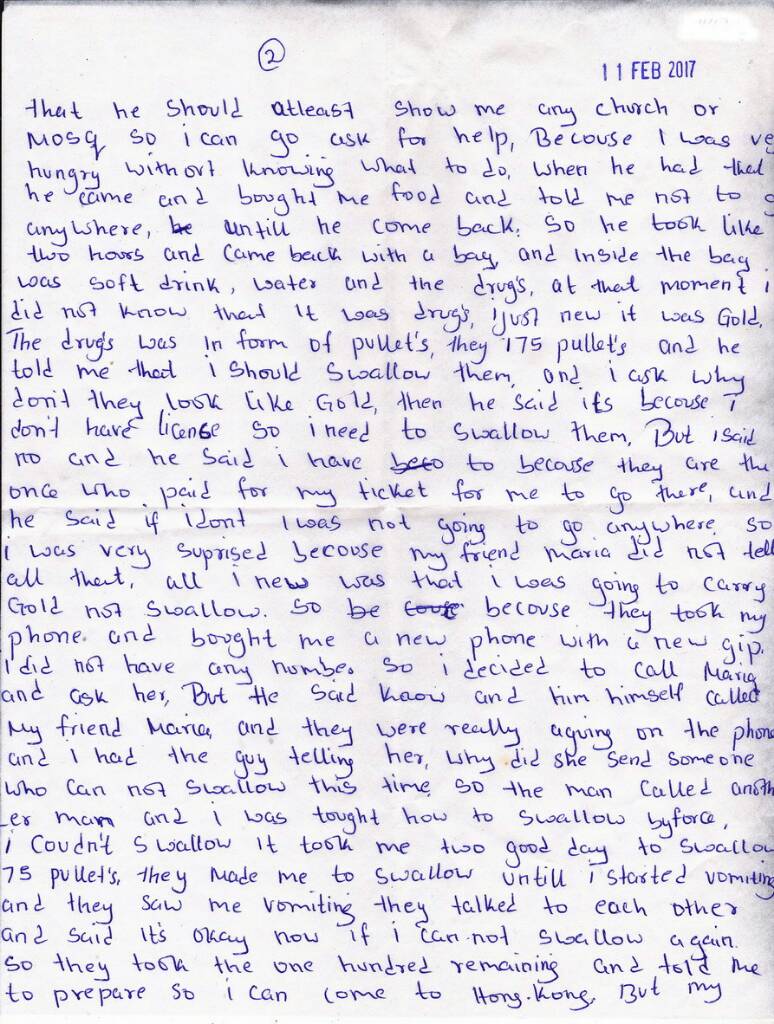 2
11 FEB 2017
that he should atleast show me any church or
Mosq so i can go ask for help, Becouse I was ve
hungry without knowing what to do, when he had that
he came and bought me food and told me not to g
anywhere, untill he come back. So he took like
two hours and came back with a bag, and inside the bag
was soft drink, water and the drug's, at that moment i
did not know that it was drug's, ijust new it was Gold.
The drug's was in form of pullet's, they 175 pullet's and he
told me that i should swallow them, and i ask why
don't they look like Gold, then he said its becouse I
don't have license so i need to swallow them, But i said
no and he said i have to becouse they are the
once who paid for my ticket for me to go there, and
he said if idont I was not going to go anywhere. so
i was very suprised becouse my friend maria did not tell
all that, all i new was that i was going to carry
Gold not swallow. so becouse they took my
phone. and bought me a new phone with a new gip.
I did not have any number so i decided to call Maria
and ask her, But He said know and him himself called
My friend Maria, and they were really aguing on the phone
and I had the guy telling her, why did she send someone
who can not swallow this time, so the man called anoth
-er man and i was tought how to swallow byforce,
i coudn't swallow it took me two good day to swallow
75 pullet's, they made me to swallow untill i started vomiting
and they saw me vomiting they talked to each other
and said it's okay now if i can not swallow again.
so they took the one hundred remaining and told me
to prepare so i can come to Hong-Kong. But my